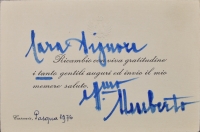 Cara Signora
Ricambio con viva gratitudine
i tanto gentili auguri ed invio il mio
memore saluto.
Umberto
Pasqua 1976